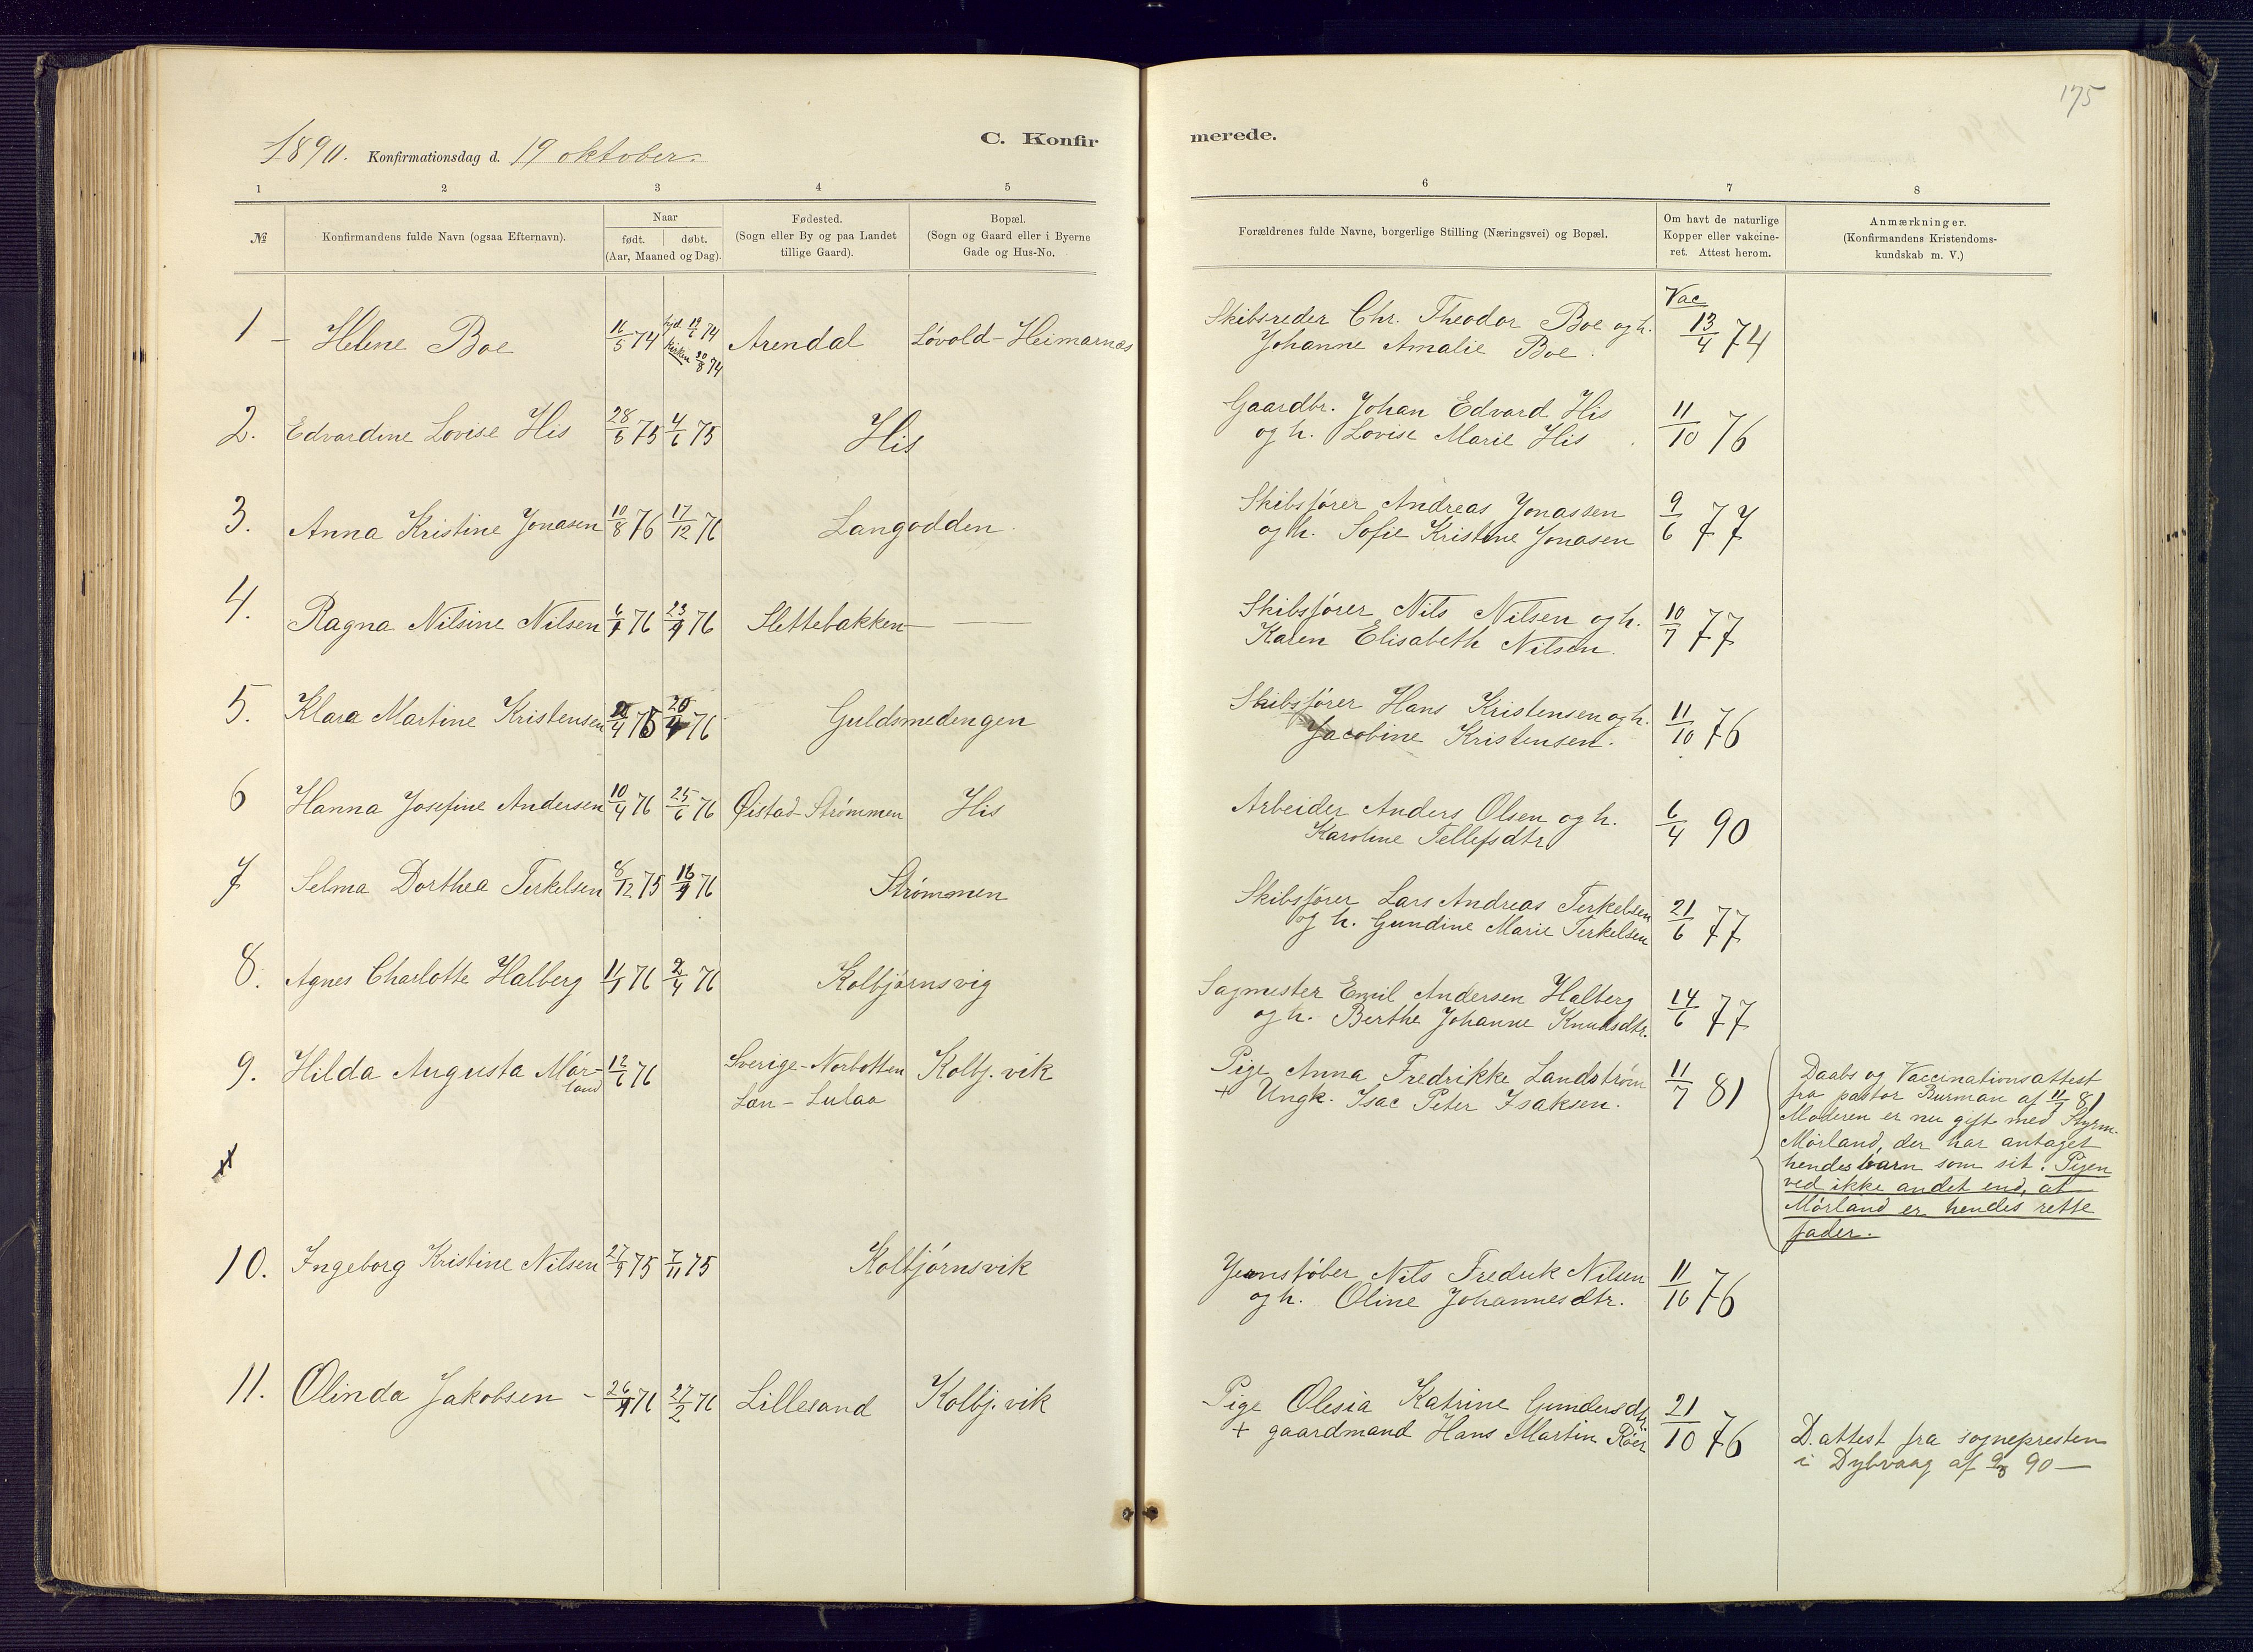 175
1890. Konfirmationsdag d. 19 oktober.
C. Konfir
merede.
1 2 3 4 5 6 7 8
№
Konfirmandens fulde Navn (ogsaa Efternavn).
Naar
født. døbt.
(Aar, Maaned og Dag).
Fødested.
(Sogn eller By og paa Landet
tillige Gaard).
Bopæl.
(Sogn og Gaard eller i Byerne
Gade og Hus-No.
Forældrenes fulde Navne, borgerlige Stilling (Næringsvei) og Bopæl.
Om havt de naturlige
Kopper eller vakcine-
ret. Attest herom.
Anmærkninger.
(Konfirmandens Kristendoms-
kundskab m. V.)
1 - Helene Boe 16/5 74 hjd. 19/6 74
kirken 20/8 74
Arendal Løvold-Heimarnæs
Skibsreder Chr. Theodor Boe og h.
Johanne Amalie Boe.
Vac
13/4 74
2. Edvardine Lovise His 28/5 75 4/6 75 His
Gaardbr. Johan Edvard His
og h. Lovise Marie His
11/10 76
3. Anna Kristine Jonasen 10/8 76 17/12 76 Langodden.
Skibsfører Andreas Jonassen
og h. Sofie Kristine Jonasen
9/6 77
4. Ragna Nilsine Nilsen 76 76 Slettebakken
Skibsfører Nils Nilsen og h.
Karen Elisabeth Nilsen.
10/7 77
5. Klara Martine Kristensen 75 76 Guldsmedengen
Skibsfører Hans Kristensen og h.
Jacobine Kristensen.
11/10 76
6 Hanna Josefine Andersen 10/4 76 25/6 76 Øistad-Strømmen His
Arbeider Anders Olsen og h.
Karoline Tellefsdtr
6/4 90
7 Selma Dorthea Terkelsen 8/12 75 76 Strømmen
Skibsfører Lars Andreas Terkelsen
og h. Gundine Marie Terkelsen
21/6 77
8. Agnes Charlotte Halberg 76 2/4 76 Kolbjørnsvig
Sagmester Emil Andersen Halberg
og h. Berthe Johanne Knudsdtr.
14/6 77
9. Hilda Augusta Mør-
land
12/6 76
Sverige-Norbotten
Lan-Lulaa
Kolbj.vik
Pige Anna Fredrikke Landstrøm
+ Ungk. Isac Peter Isaksen.
11/7 81
Daabs og Vaccinationsattest
fra pastor Burman af 11/7 81
Moderen er nu gift med Styrm.
Mørland, der har antaget
hendes barn som sit. Pigen
ved ikke andet end, at
Mørland er hendes rette
fader.
xx
10. Ingeborg Kristine Nilsen 27/9 75 7/11 75 Kolbjørnsvik
Jernstøber Nils Fredrik Nilsen
og h. Oline Johannesdtr.
11/10 76
11. Olinda Jakobsen - 76 27/2 76 Lillesand Kolbj.vik
Pige Olesia Katrine Gundersdtr
+ gaardmand Hans Martin Røer
21/10 76
D.attest fra sognepresten
i Dybvaag af 90 —